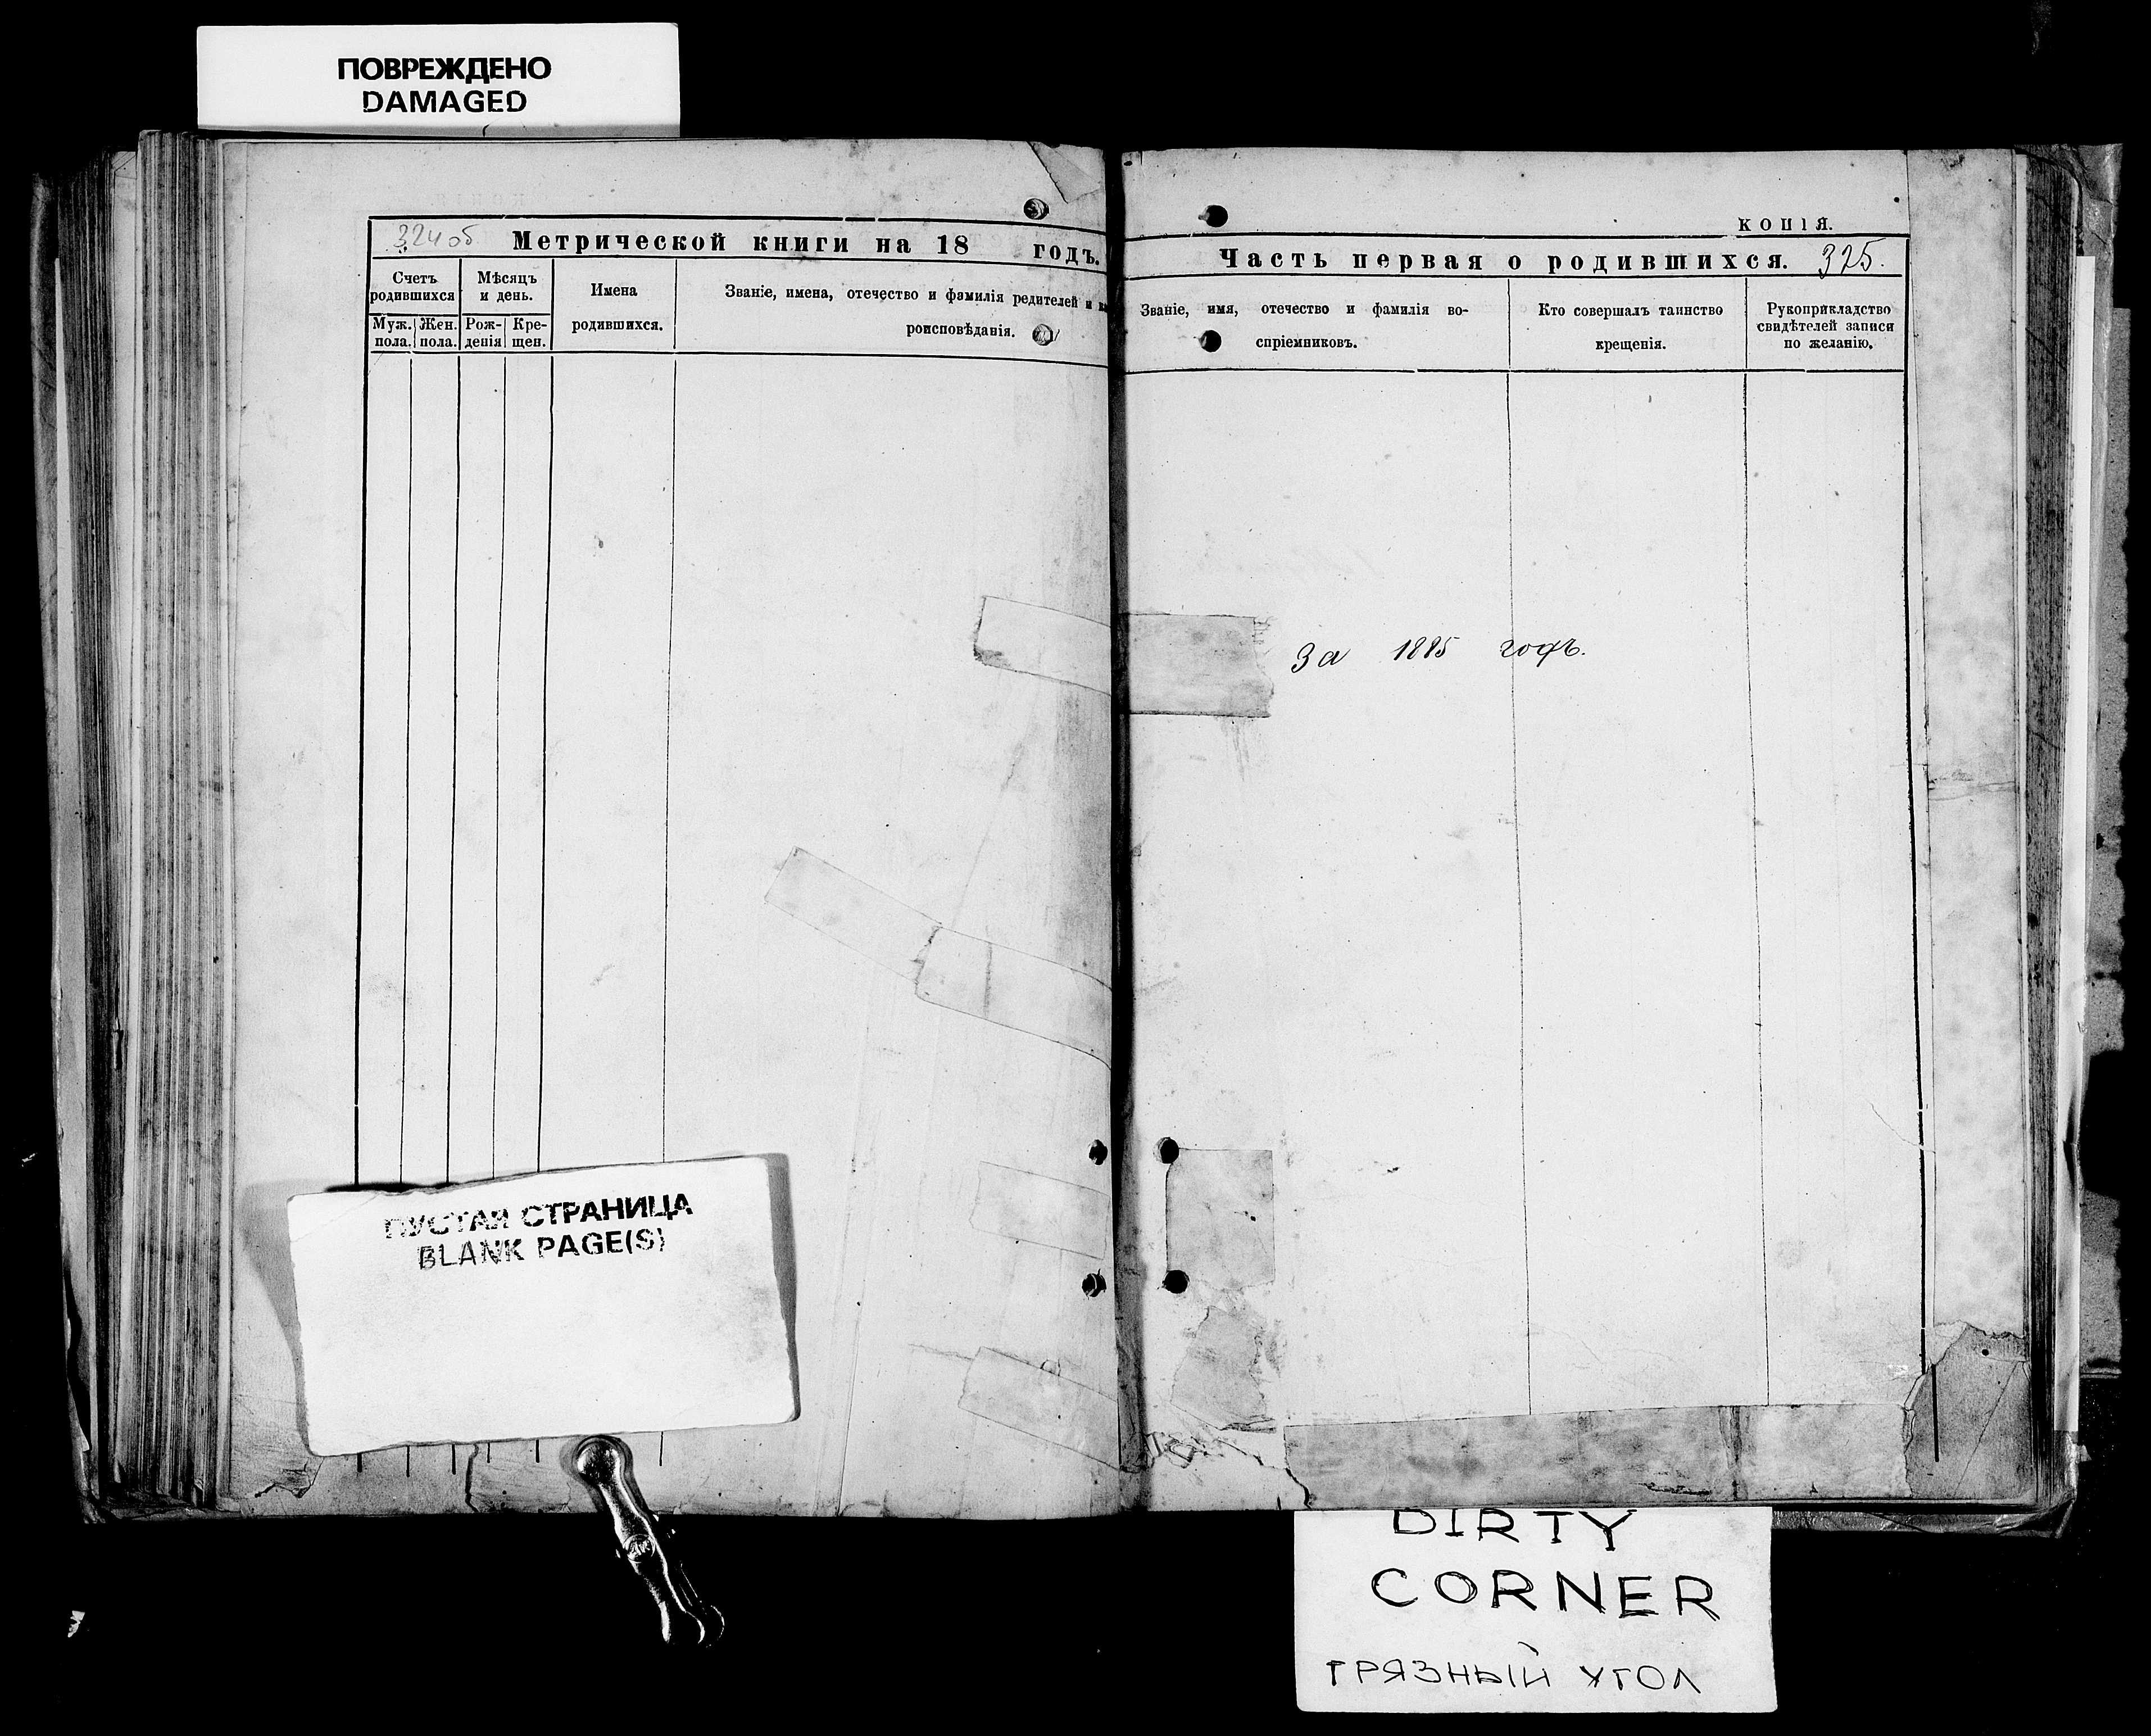 ПОВРЕЖДЕНО
DAMAGED
324 об
Метрической книги на 18 годъ.
Счетъ родившихся
Муж. пола.
Жен. пола.
Мѣсяцъ и день.
Рож-
денія
Кре-
щен.
Имена
родившихся.
Званіе, имена, отечество и фамилія родителей и
роисповѣданія.
КОПІЯ.
Часть первая о родившихся. 325.
Званіе, имя, отечество и фамилія во-
спріемниковъ.
Кто совершалъ таинство
крещенія.
Рукоприкладство
свидѣтелей записи
по желанію.
За 1885 годъ.
ПУСТАЯ СТРАНИЦА
BLANK PAGE(S)
DIRTY
CORNER
ГРЯЗНЫЙ УГОЛ